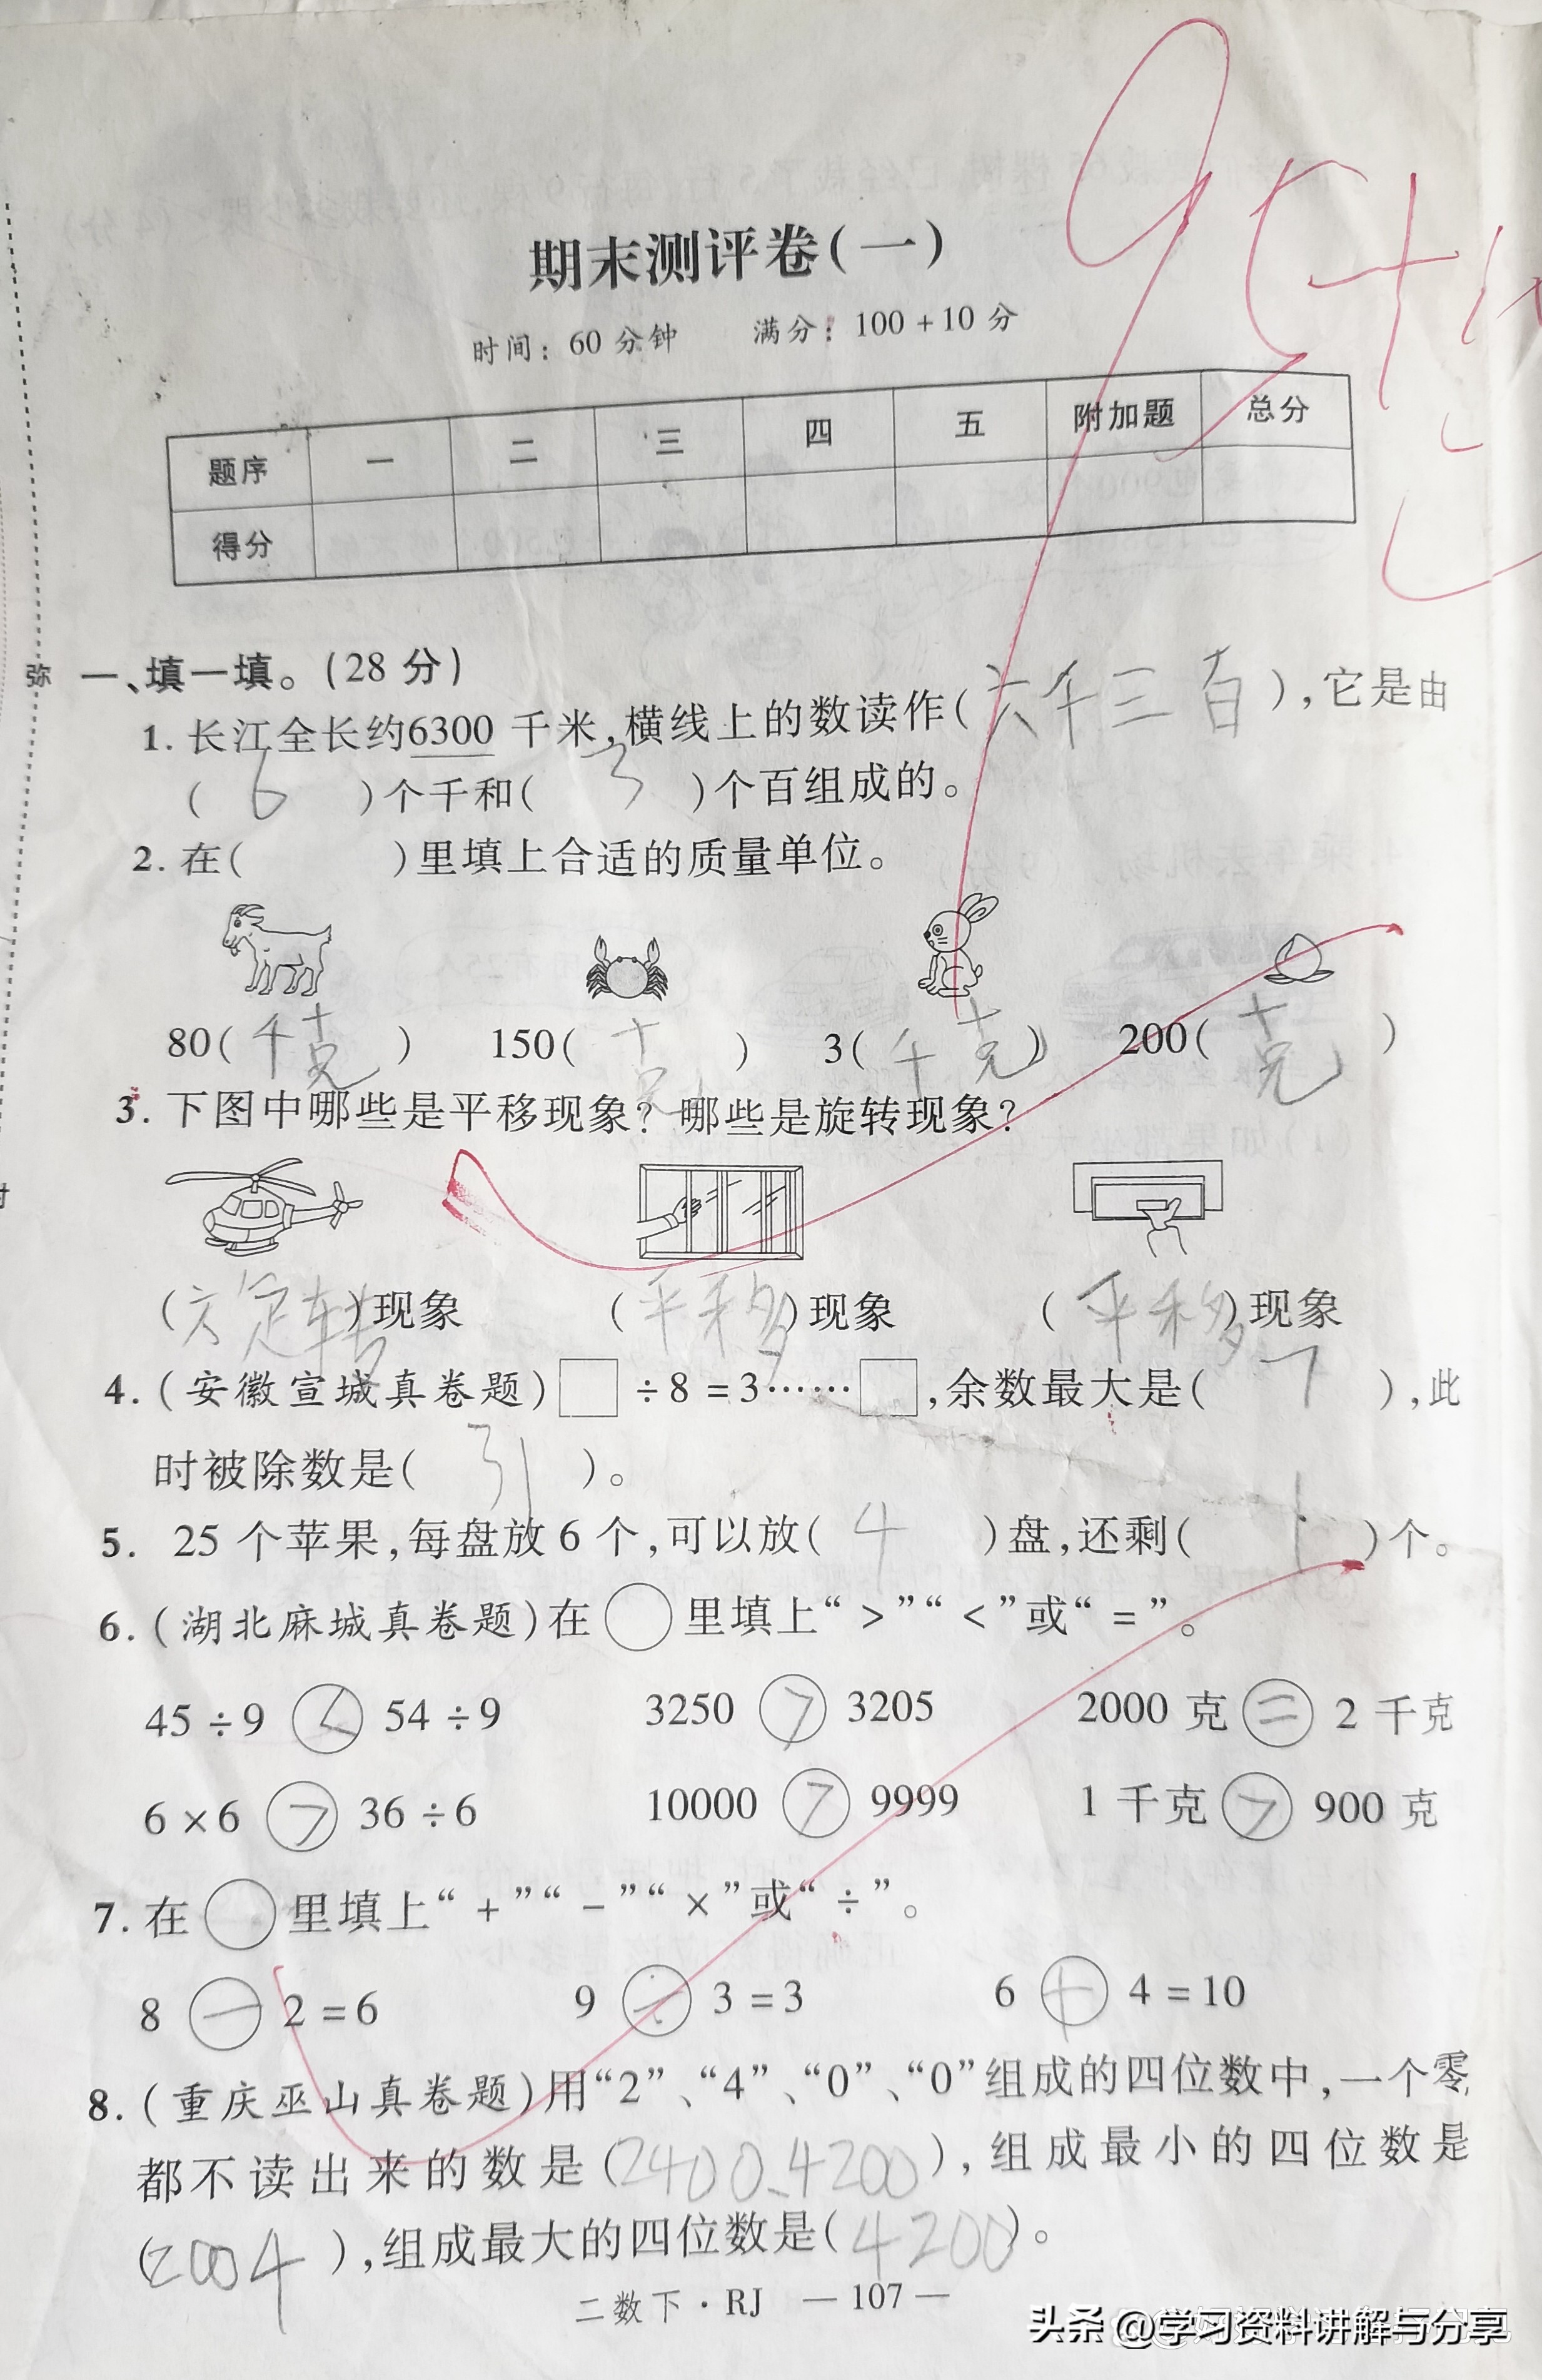 期末测评卷(一)
时间：60分钟 满分：100+10分
题序 一 二 三 四 五 附加题 总分
得分
弥
一、填一填。(28分)
1. 长江全长约6300千米,横线上的数读作(六千三百),它是由
(6)个千和(3)个百组成的。
2. 在( )里填上合适的质量单位。
80(千克) 150(克) 3(千克) 200(克)
3. 下图中哪些是平移现象?哪些是旋转现象?
(旋转)现象 (平移)现象 (平移)现象
4. (安徽宣城真卷题)□÷8=3……□,余数最大是(7),此
时被除数是(31)。
5. 25个苹果,每盘放6个,可以放(4)盘,还剩(1)个。
6. (湖北麻城真卷题)在○里填上“>”“<”或“=”。
45÷9 < 54÷9 3250 > 3205 2000克 = 2千克
6×6 > 36÷6 10000 > 9999 1千克 > 900克
7. 在○里填上“+”“-”“×”或“÷”。
8 - 2=6 9 ÷ 3=3 6 + 4=10
8. (重庆巫山真卷题)用“2”、“4”、“0”、“0”组成的四位数中,一个零
都不读出来的数是(2400、4200),组成最小的四位数是
(2004),组成最大的四位数是(4200)。
二数下·RJ —107—
头条 @学习资料讲解与分享